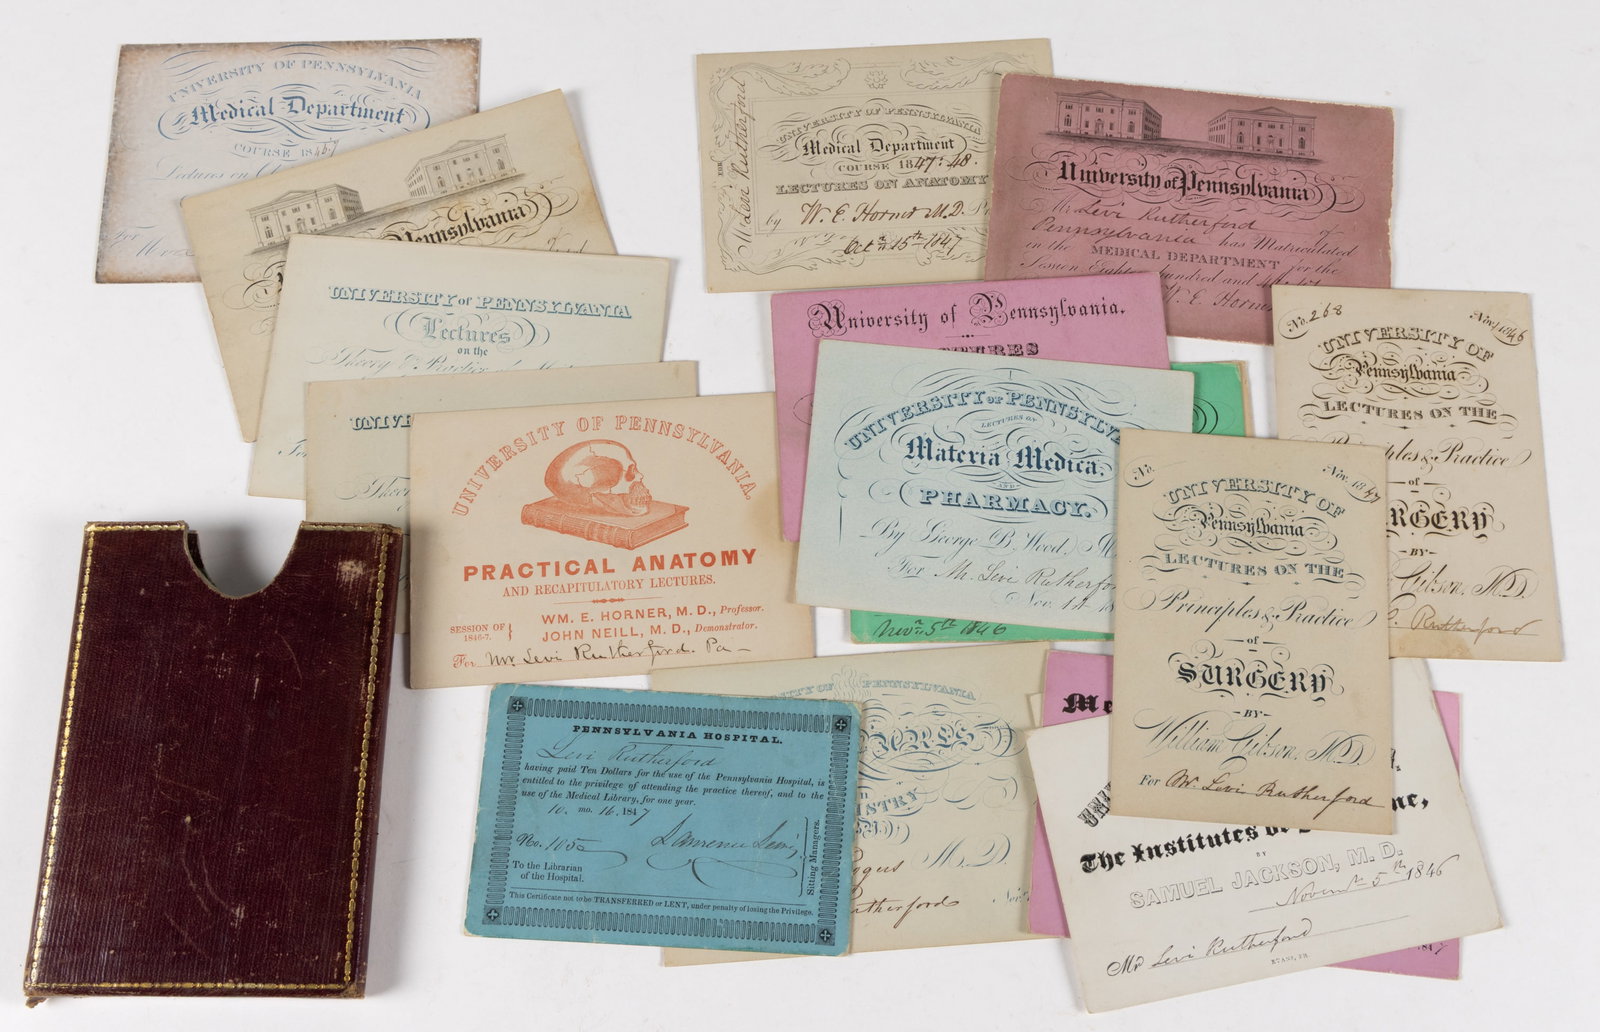 UNIVERSITY OF PENNSYLVANIA
Medical Department
COURSE 1846.7
Lectures on
For
Pennsylvania
UNIVERSITY of PENNSYLVANIA
Lectures
on the
Theory & Practice
UNIV
UNIVERSITY OF PENNSYLVANIA.
PRACTICAL ANATOMY
AND RECAPITULATORY LECTURES.
WM. E. HORNER, M. D., Professor.
SESSION OF 1846-7. }
JOHN NEILL, M. D., Demonstrator.
For Mr. Levi Rutherford. Pa —
UNIVERSITY OF PENNSYLVANIA
Medical Department
COURSE 1847.-48.
LECTURES ON ANATOMY
by W. E. Horner M.D.
Oct 15th 1847
FOR
Mr Levi Rutherford
University of Pennsylvania
Mr Levi Rutherford of
Pennsylvania has Matriculated
in the MEDICAL DEPARTMENT for the
Session Eighteen hundred and
W. E. Horner
University of Pennsylvania.
UNIVERSITY OF PENNSYLVA
LECTURES ON
Materia Medica,
AND
PHARMACY.
By George B. Wood,
For Mr. Levi Rutherfor
Nov. 18
Nov 5th 1846
No. 268
Nov. 1846
UNIVERSITY OF
Pennsylvania
LECTURES ON THE
Practice
of
RGERY
BY
Gibson, M.D.
Rutherford
No.
Nov. 1847
UNIVERSITY OF
Pennsylvania
LECTURES ON THE
Principles & Practice
of
SURGERY
BY
William Gibson, M.D.
For Mr. Levi Rutherford
PENNSYLVANIA HOSPITAL.
Levi Rutherford
having paid Ten Dollars for the use of the Pennsylvania Hospital, is
entitled to the privilege of attending the practice thereof, and to the
use of the Medical Library, for one year.
10. mo. 16. 1847
No. 105
To the Librarian
of the Hospital.
Sitting Managers.
This Certificate not to be TRANSFERRED or LENT, under penalty of losing the Privilege.
PENNSYLVANIA
M. D.
Me
The Institutes
ne,
BY
SAMUEL JACKSON, M. D.
Novemr 5th 1846
Mr Levi Rutherford